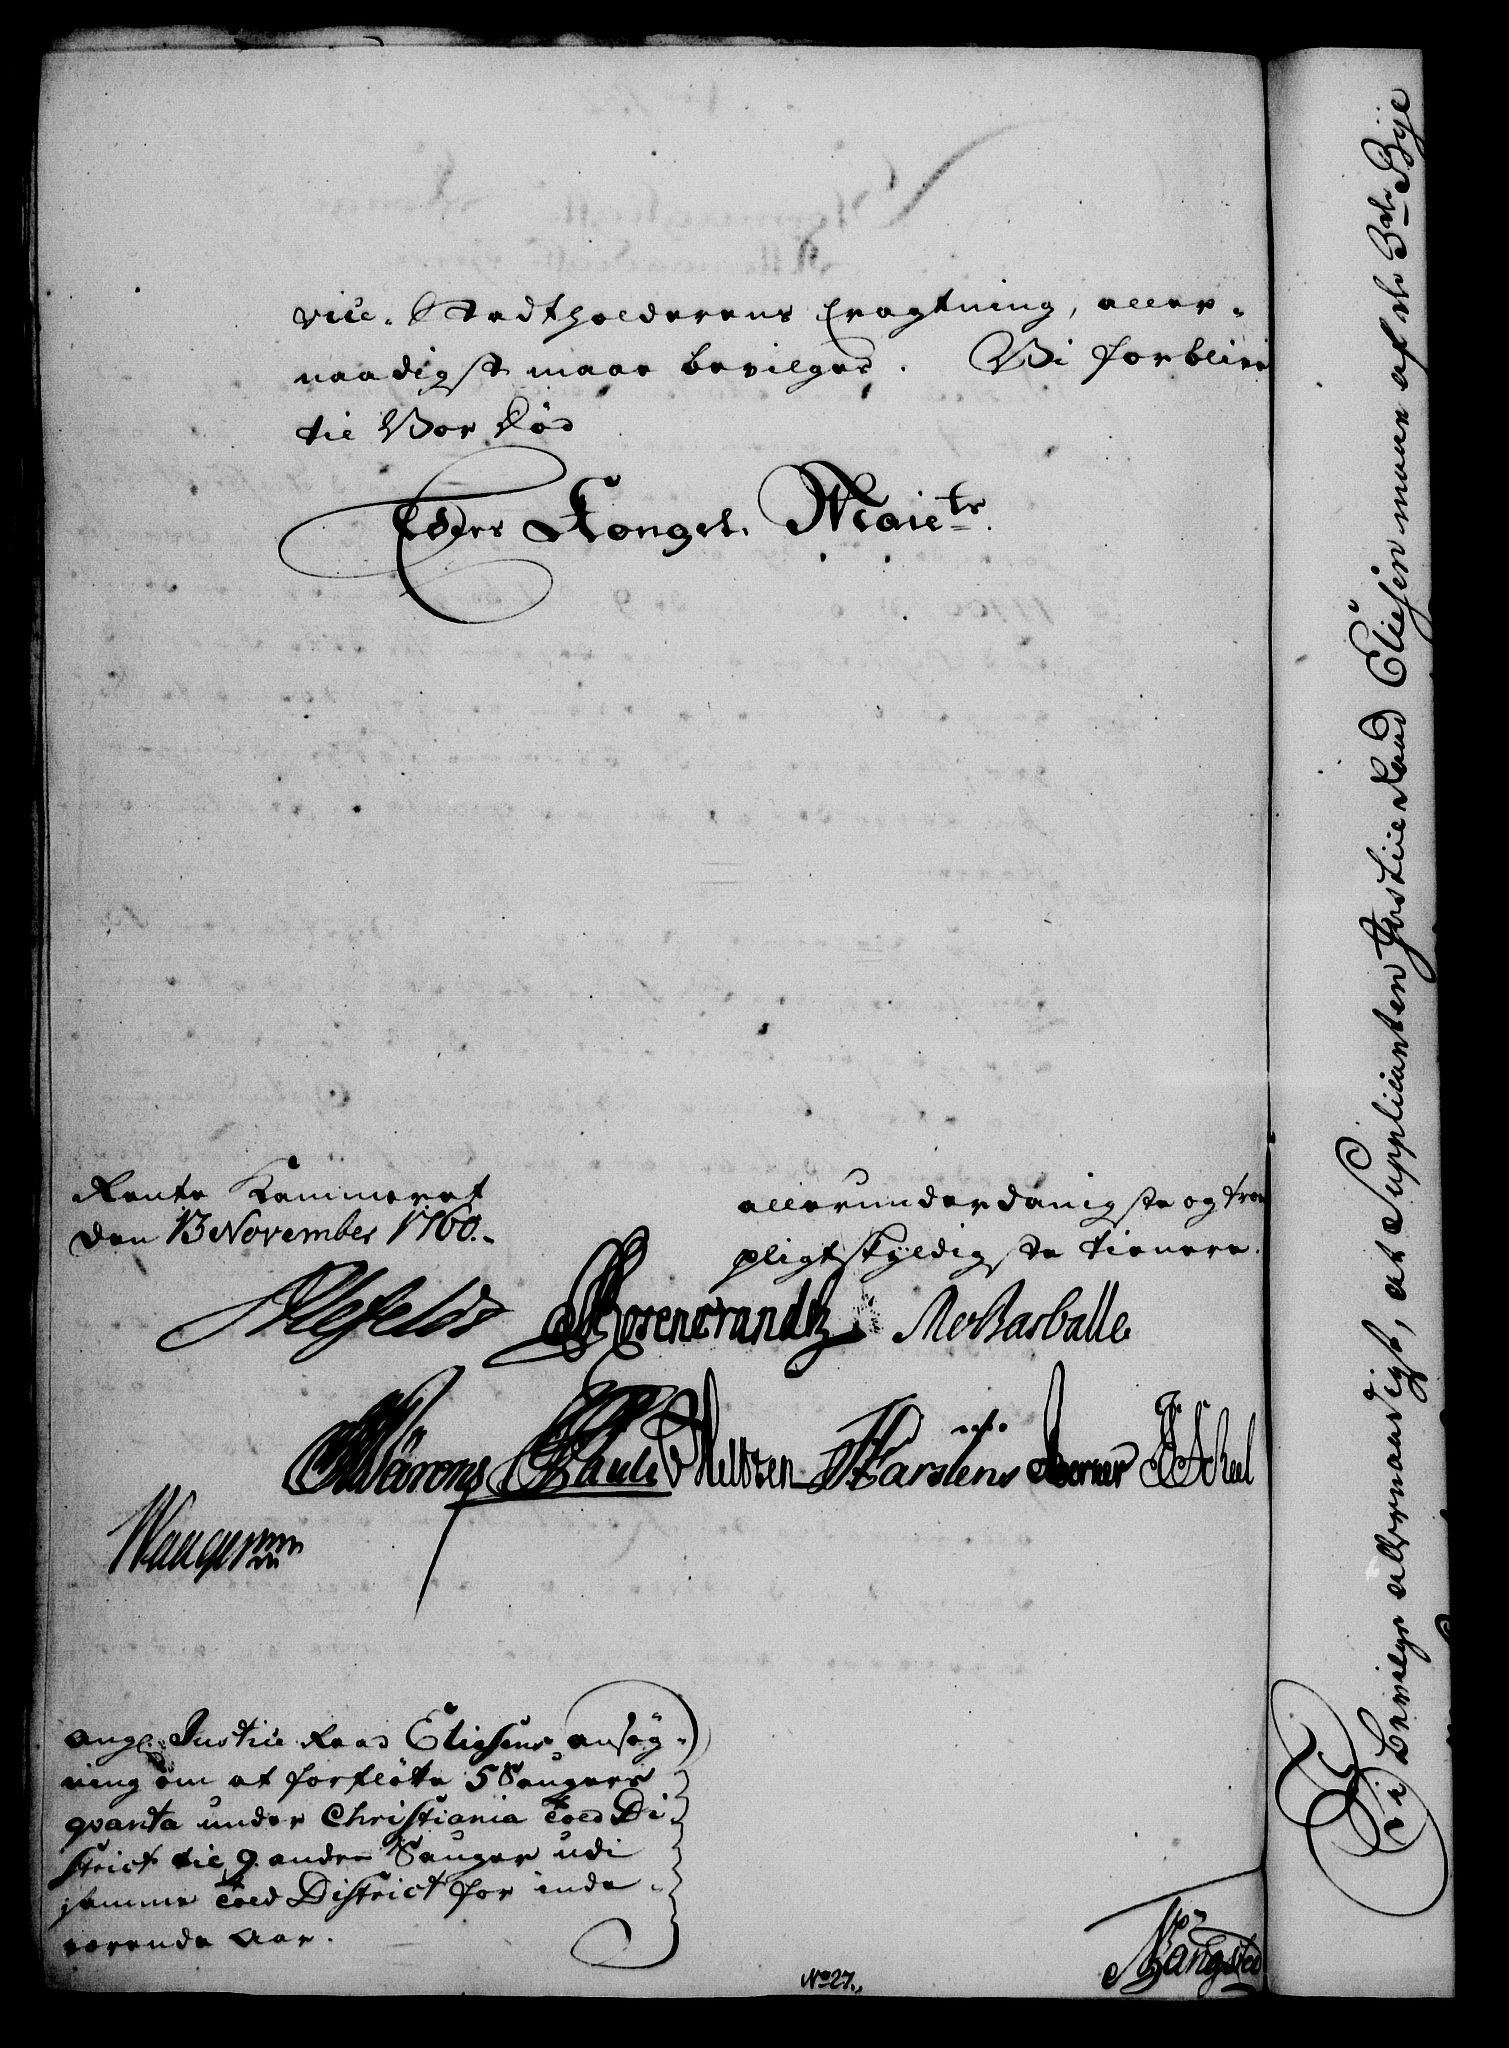 vice-Stadtholderens Eragtning, aller-
naadigst maae bevilges. Vi forblive
til Vor Død
Eders Kongel. Maiets.
Rente Kammeret
den 13 November 1760.
allerunderdanigste og troe
pligtskyldigste tienere.
Alefeldt Rosencrandtz MvBarballe
Wärens Paule Heltzen Karstens Berner Skeel
ang. Justice Raad Eliesens ansøg-
ning om at forfløtte 5 Saugers
qvanta under Christiania Told Di-
strict til 9 andre Sauger udi
samme Told District for inde-
værende Aar.
No 27.
Bangsted
Vi bevilge allernaadigst, at Supplicanten Justice Raad Eliesen maae af de Brte Bye